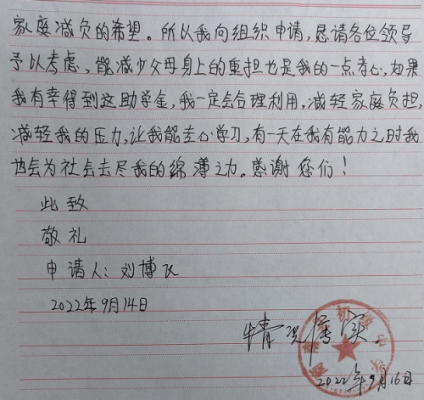 家庭减负的希望。所以我向组织申请,恳请各位领导
予以考虑、能减少父母身上的重担也是我的一点孝心,如果
我有幸得到这助学金,我一定会合理利用,减轻家庭负担,
减轻我的压力,让我能专心学习,有一天在我有能力之时我
也会为社会去尽我的绵薄之力。感谢您们!
此致
敬礼
申请人:刘博飞
2022年9月14日
情况属实
2022年9月16日